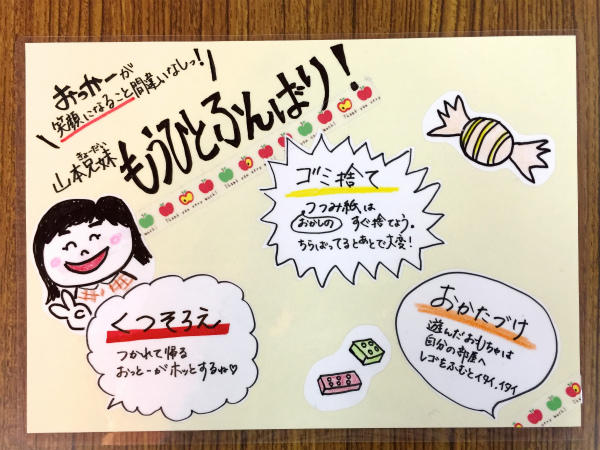 おっかーが
笑顔になること間違いなしっ!
山本兄妹
きょーだい
もうひとふんばり!
Thank you very much!
ゴミ捨て
つつみ紙は
おかしの すぐ捨てよう。
ちらばってるとあとで大変!
くつそろえ
つかれて帰る
おっとーがホッとするね♡
おかたづけ
遊んだおもちゃは
自分の部屋へ
レゴをふむとイタイ、イタイ